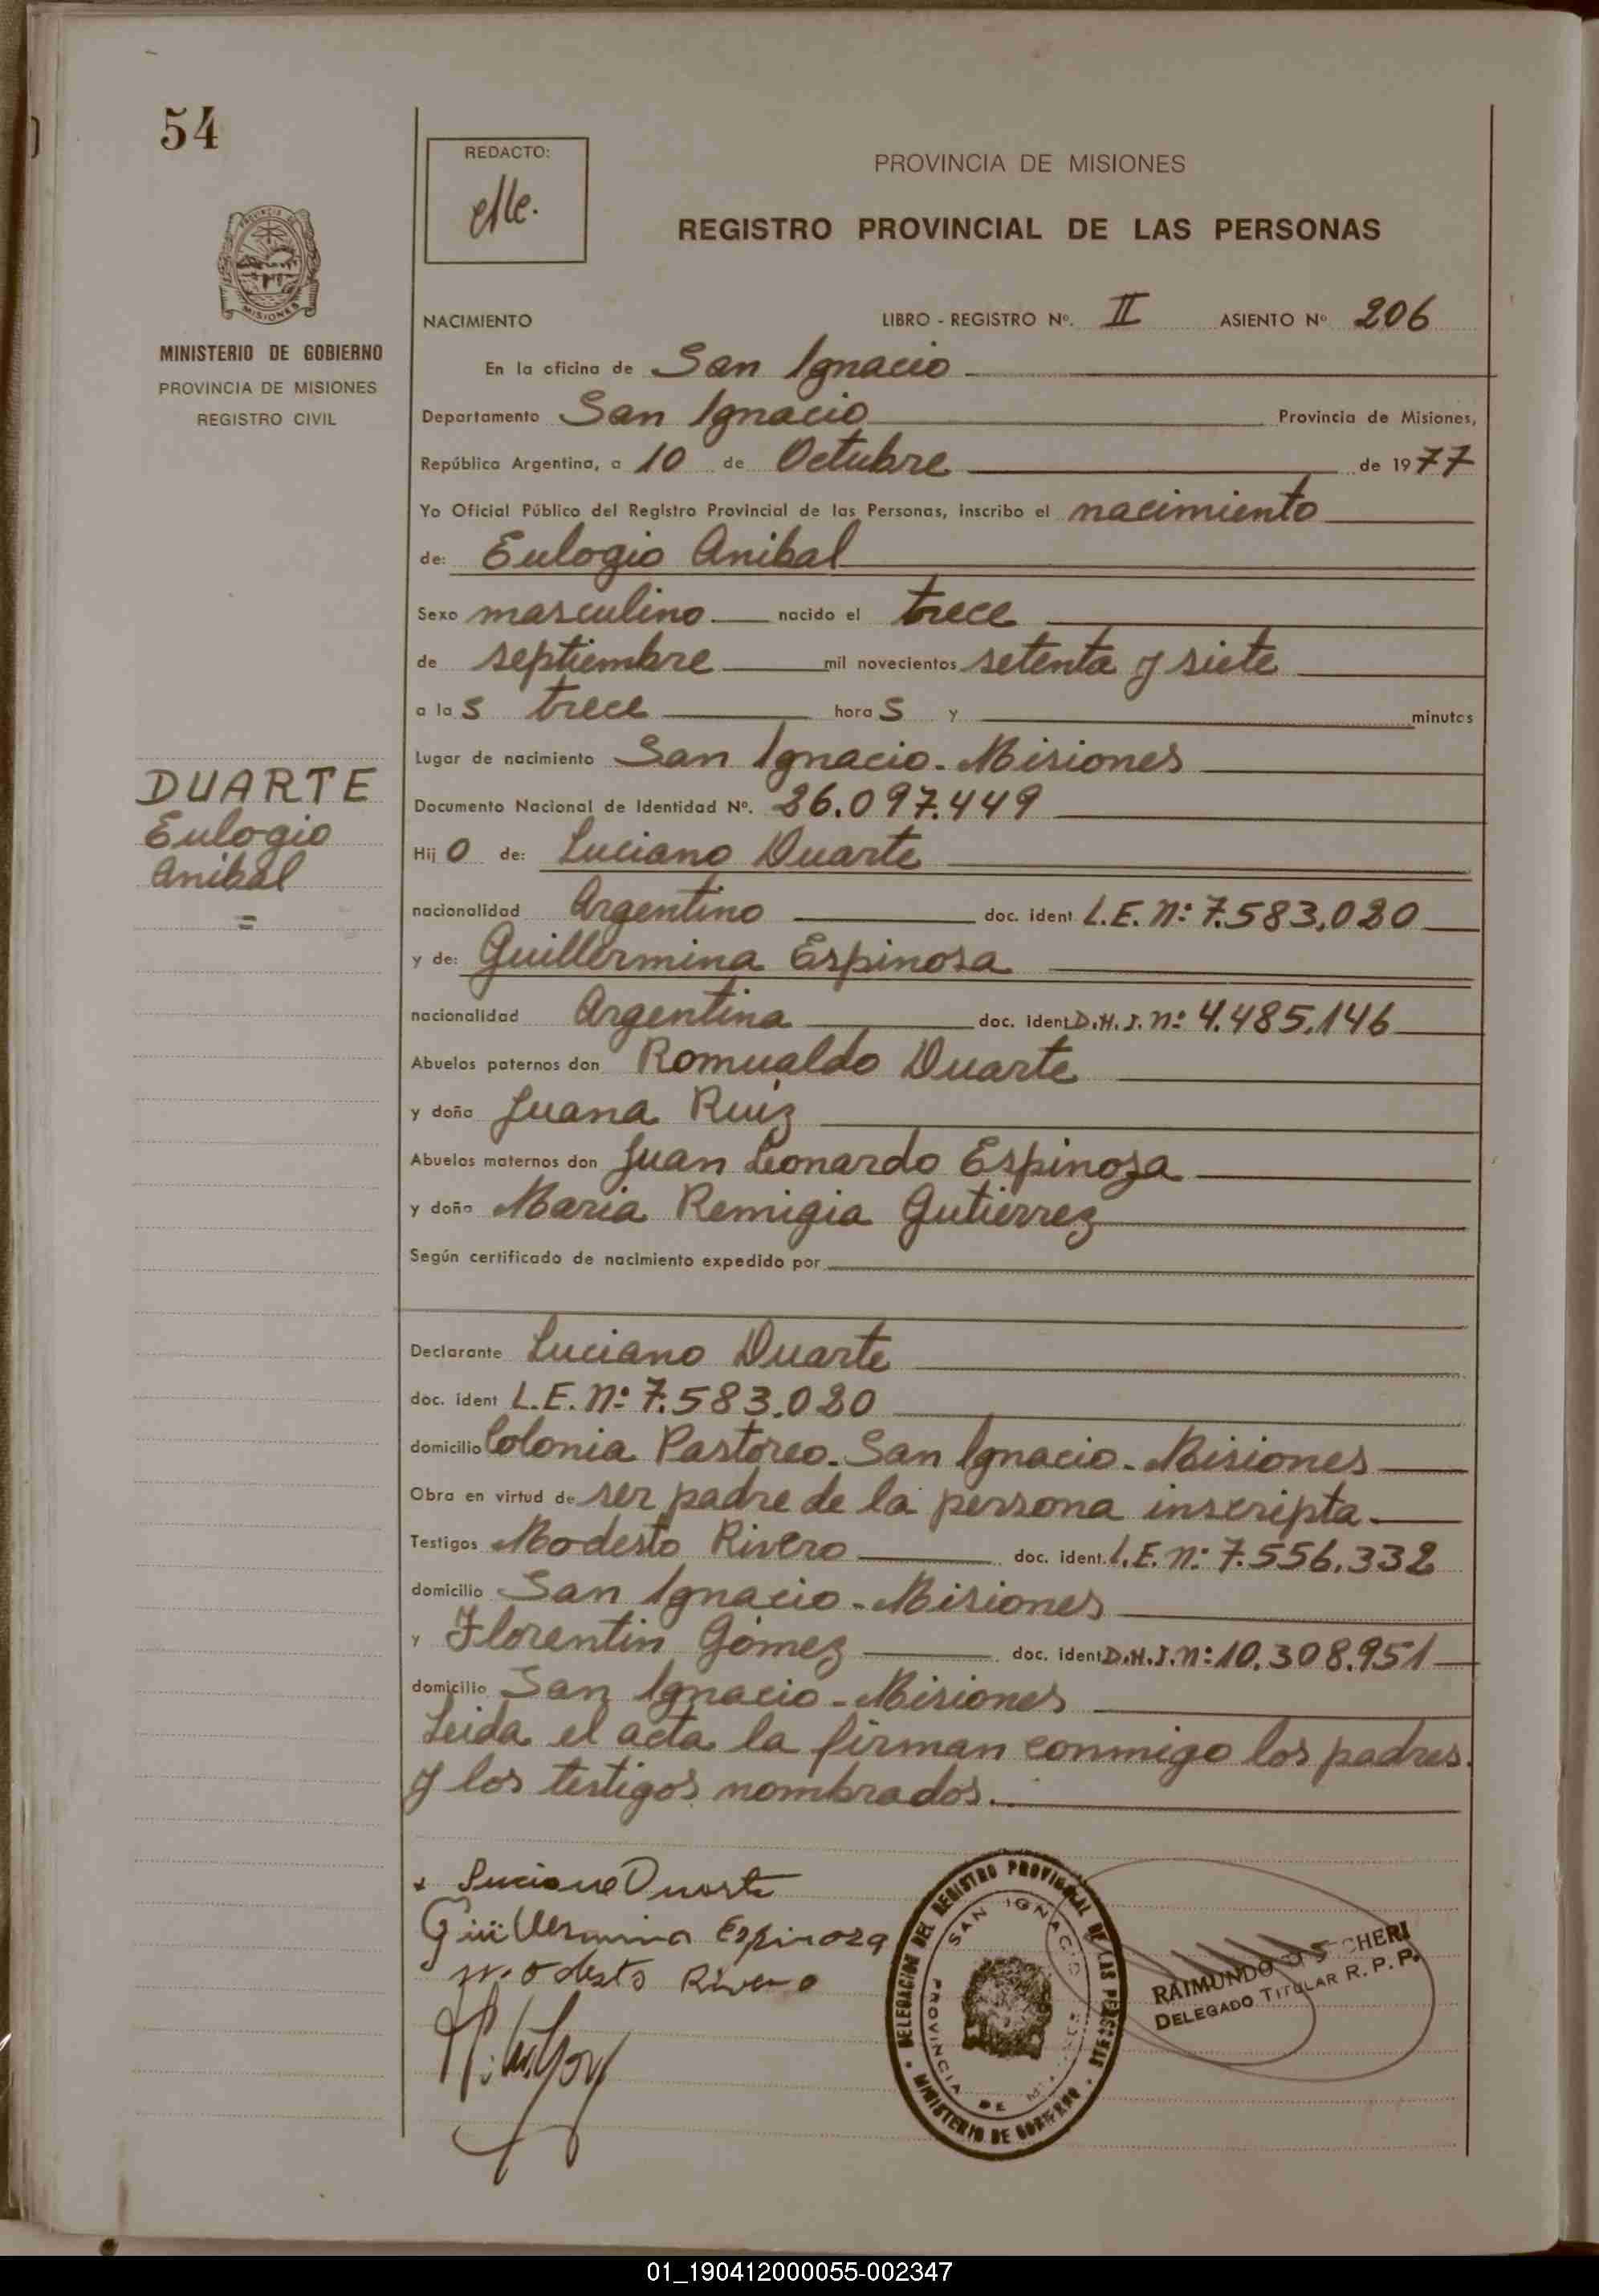 54
REDACTO:
PROVINCIA DE MISIONES
REGISTRO PROVINCIAL DE LAS PERSONAS
MISIONES
MINISTERIO DE GOBIERNO
PROVINCIA DE MISIONES
REGISTRO CIVIL
NACIMIENTO LIBRO - REGISTRO Nº. II ASIENTO Nº 206
En la oficina de San Ignacio
Departamento San Ignacio Provincia de Misiones,
República Argentina, a 10 de Octubre de 1977
Yo Oficial Público del Registro Provincial de las Personas, inscribo el nacimiento
de: Eulogio Anibal
Sexo masculino nacido el trece
de septiembre mil novecientos setenta y siete
a las trece horas y minutos
Lugar de nacimiento San Ignacio - Misiones
DUARTE
Eulogio
Anibal
=
Documento Nacional de Identidad Nº. 26.097.449
Hijo de: Luciano Duarte
nacionalidad Argentino doc. ident. L.E. Nº 7.583.020
y de: Guillermina Espinosa
nacionalidad Argentina doc. ident D.N.I. Nº 4.485.146
Abuelos paternos don Romualdo Duarte
y doña Juana Ruiz
Abuelos maternos don Juan Leonardo Espinoza
y doña Maria Remigia Gutierrez
Según certificado de nacimiento expedido por
Declarante Luciano Duarte
doc. ident L.E. Nº 7.583.020
domicilio Colonia Pastoreo - San Ignacio - Misiones
Obra en virtud de ser padre de la persona inscripta
Testigos Modesto Rivero doc. ident. L.E. Nº 7.556.332
domicilio San Ignacio - Misiones
y Florentin Gómez doc. ident D.N.I. Nº 10.308.951
domicilio San Ignacio - Misiones
Leida el acta la firman conmigo los padres
y los testigos nombrados.
Luciano Duarte
Guillermina Espinoza
Modesto Rivero
DELEGACION DEL REGISTRO PROVINCIAL DE LAS PERSONAS
MINISTERIO DE GOBIERNO
SAN IGNACIO
PROVINCIA DE
RAIMUNDO
DELEGADO TITULAR R. P. P.
01_190412000055-002347